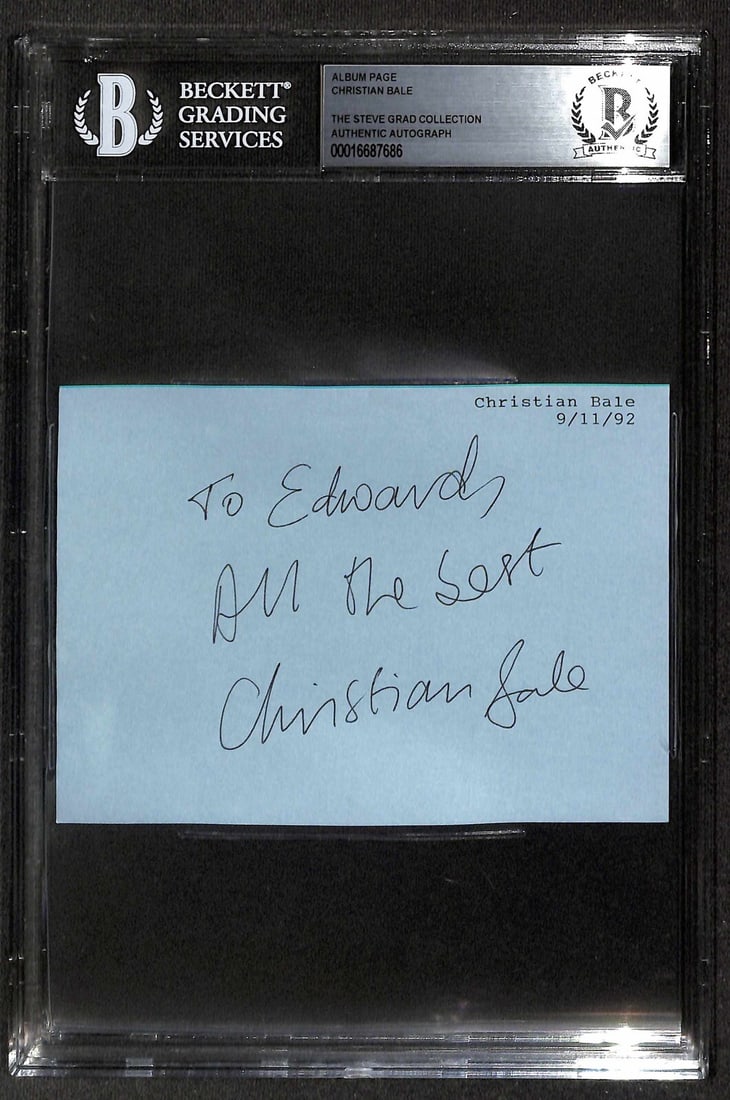 B
BECKETT®
GRADING
SERVICES
ALBUM PAGE
CHRISTIAN BALE
THE STEVE GRAD COLLECTION
AUTHENTIC AUTOGRAPH
00016687686
BECKETT
B
AUTHENTIC
Christian Bale
9/11/92
To Edwards
All the best
Christian Bale